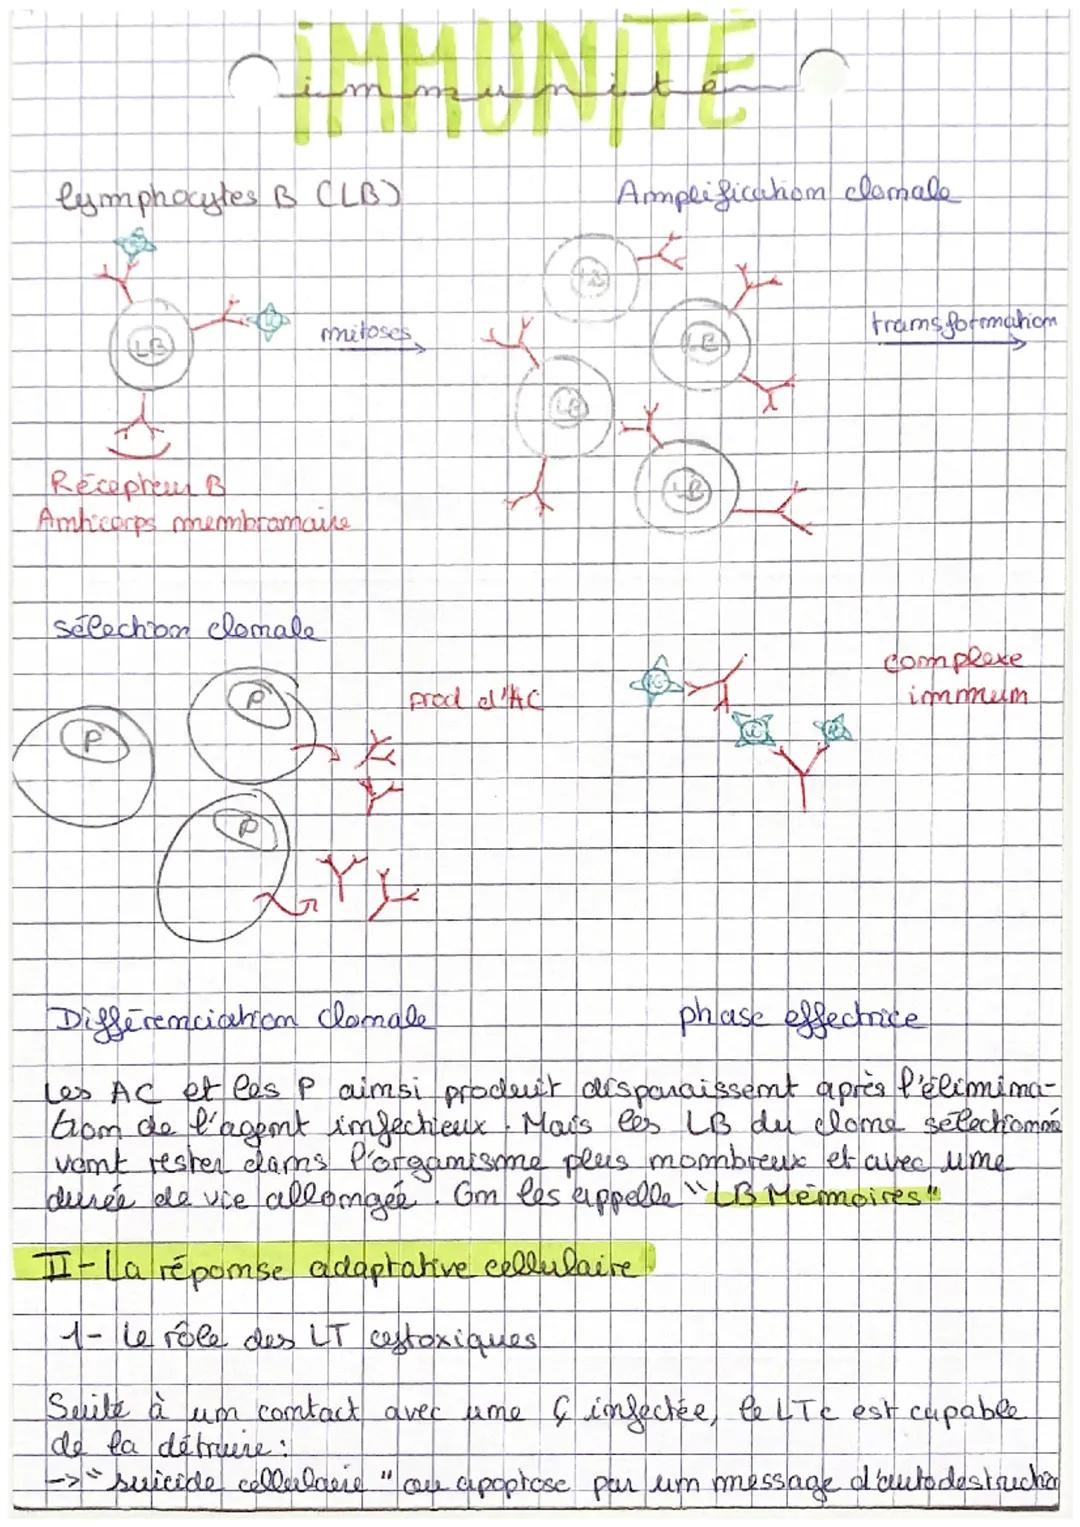 IMMUNITÉ
immunité
lymphocytes B (LB)
Amplification clonale
LB
mitoses
LB
LB
LB
LB
transformation
Récepteur B
Anticorps membranaire
sélection clonale
P
P
P
prod d'AC
complexe
immun
Différenciation clonale
phase effectrice
Les AC et les P ainsi produit disparaissent après l'élimina-
tion de l'agent infectieux. Mais les LB du clone sélectionné
vont rester dans l'organisme plus nombreux et avec une
durée de vie allongée. On les appelle "LB Mémoires"
II - La réponse adaptative cellulaire
1- Le rôle des LT cytoxiques
Suite à un contact avec une ç infectée, le LTc est capable
de la détruire :
-> "suicide cellulaire" ou apoptose par un message d'autodestruction